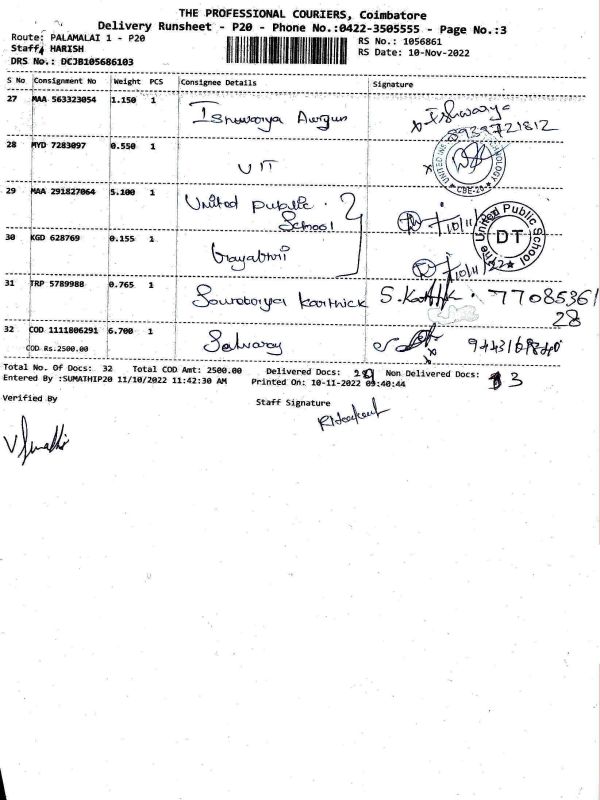 THE PROFESSIONAL COURIERS, Coimbatore
Delivery Runsheet - P20 - Phone No.:0422-3505555 - Page No.:3
Route: PALAMALAI 1 - P20
RS No.: 1056861
Staff: HARISH
RS Date: 10-Nov-2022
DRS No.: DCJB105686103
S No Consignment No Weight PCS Consignee Details Signature
27 MAA 563323054 1.150 1 Ishwarya 8939721812
28 MYD 7283097 0.550 1 UIT
29 MAA 291827064 5.100 1 United public School 10/11/22
The United Public School
DT
30 KGD 628769 0.155 1 Gayathri 10/11/22
31 TRP 5789988 0.765 1 Karthick S.Karthik. 7708536128
32 COD 1111806291 6.700 1 Selvaraj
COD Rs.2500.00
Total No. Of Docs: 32 Total COD Amt: 2500.00 Delivered Docs: 29 Non Delivered Docs: 3
Entered By :SUMATHIP20 11/10/2022 11:42:30 AM Printed On: 10-11-2022 09:40:44
Verified By
Staff Signature